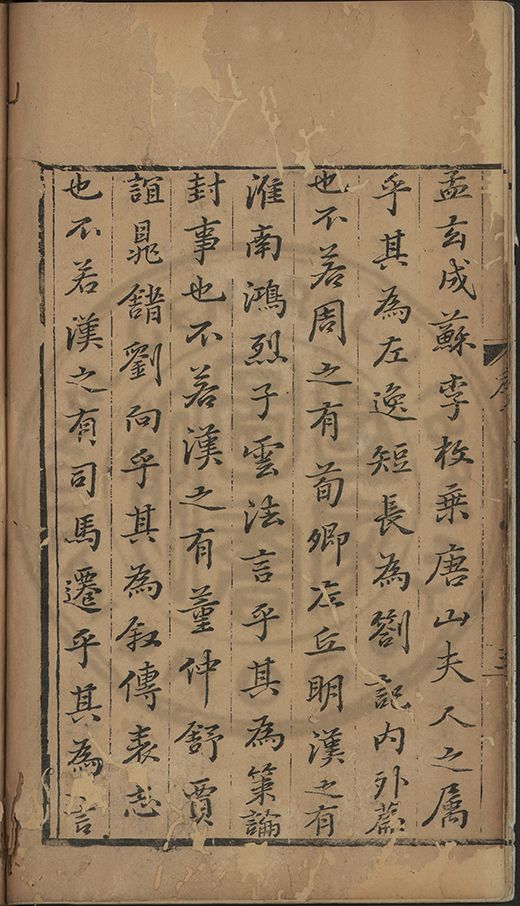 孟玄成蘇李枚乗唐山夫人之属
乎其為左逸短長為劄記内外篇
也不若周之有荀卿左丘明漢之有
淮南鴻烈子雲法言乎其為策論
封事也不若漢之有董仲舒賈
誼鼂錯劉向乎其為叙傳表志
也不若漢之有司馬遷乎其為言